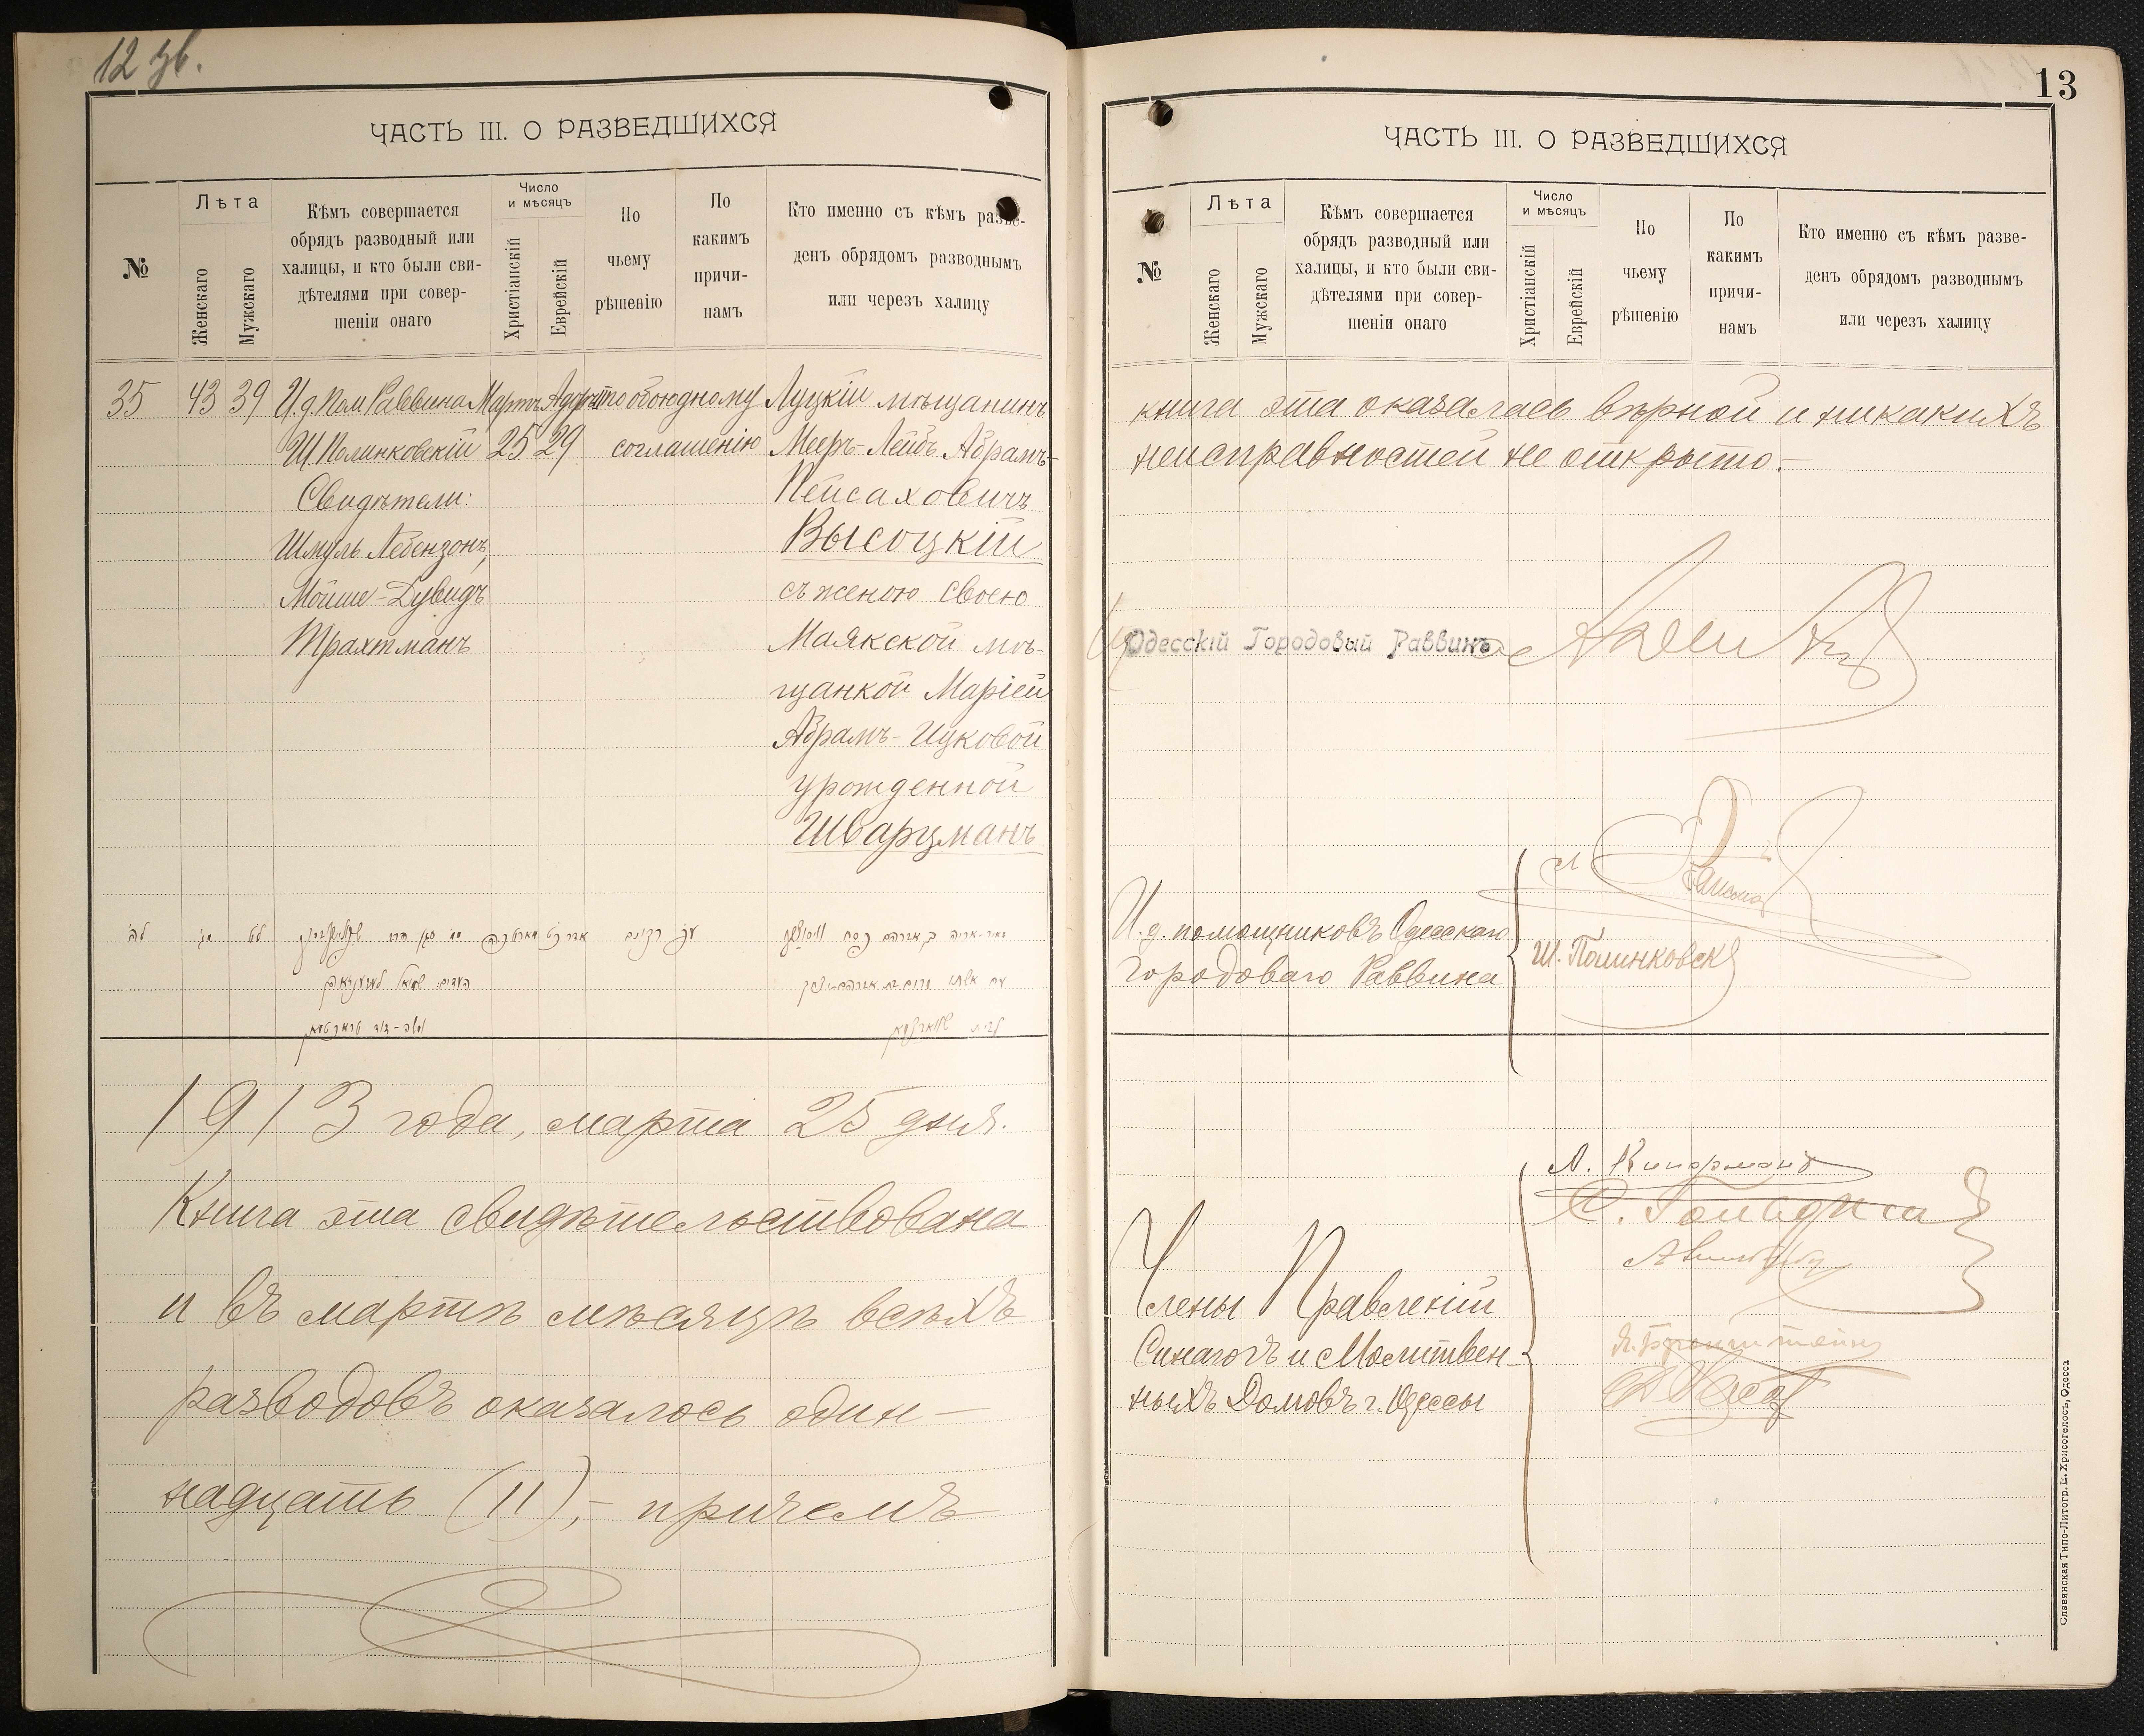 12 зв.
ЧАСТЬ III. О РАЗВЕДШИХСЯ
№
Лѣта
Женскаго
Мужскаго
Кѣмъ совершается
обрядъ разводный или
халицы, и кто были сви-
дѣтелями при совер-
шеніи онаго
Число
и мѣсяцъ
Христіанскій
Еврейскій
По
чьему
рѣшенію
По
какимъ
причи-
намъ
Кто именно съ кѣмъ разве-
денъ обрядомъ разводнымъ
или черезъ халицу
35
43
39
И.д. Пом. Раввина
Ш. Полинковскій
Свидѣтели:
Шмуль Лебензонъ,
Мойше-Дувидъ
Трахтманъ
Мартъ
25
29
По обоюдному
соглашенію
Луцкій мѣщанинъ
Мееръ-Лейбъ Абрамъ-
Пейсаховичъ
Высоцкій
съ женою своею
Маякской мѣ-
щанкой Маріей
Абрамъ-Ицковой
урожденной
Шварцманъ
1913 года, марта 25 дня.
Книга эта свидѣтельствована
и въ мартѣ мѣсяцѣ всѣхъ
разводовъ оказалось один-
надцать (11),- причемъ
13
ЧАСТЬ III. О РАЗВЕДШИХСЯ
№
Лѣта
Женскаго
Мужскаго
Кѣмъ совершается
обрядъ разводный или
халицы, и кто были сви-
дѣтелями при совер-
шеніи онаго
Число
и мѣсяцъ
Христіанскій
Еврейскій
По
чьему
рѣшенію
По
какимъ
причи-
намъ
Кто именно съ кѣмъ разве-
денъ обрядомъ разводнымъ
или черезъ халицу
книга эта оказалась вѣрной и никакихъ
неисправностей не открыто.-
Одесскій Городовый Раввинъ
И.д. помощниковъ Одесскаго
Городоваго Раввина
Ш. Полинковск
Члены Правленій
Синагогъ и Молитвен-
ныхъ Домовъ г. Одессы
Славянская Типо-Литогр. Е. Хрисогелосъ, Одесса